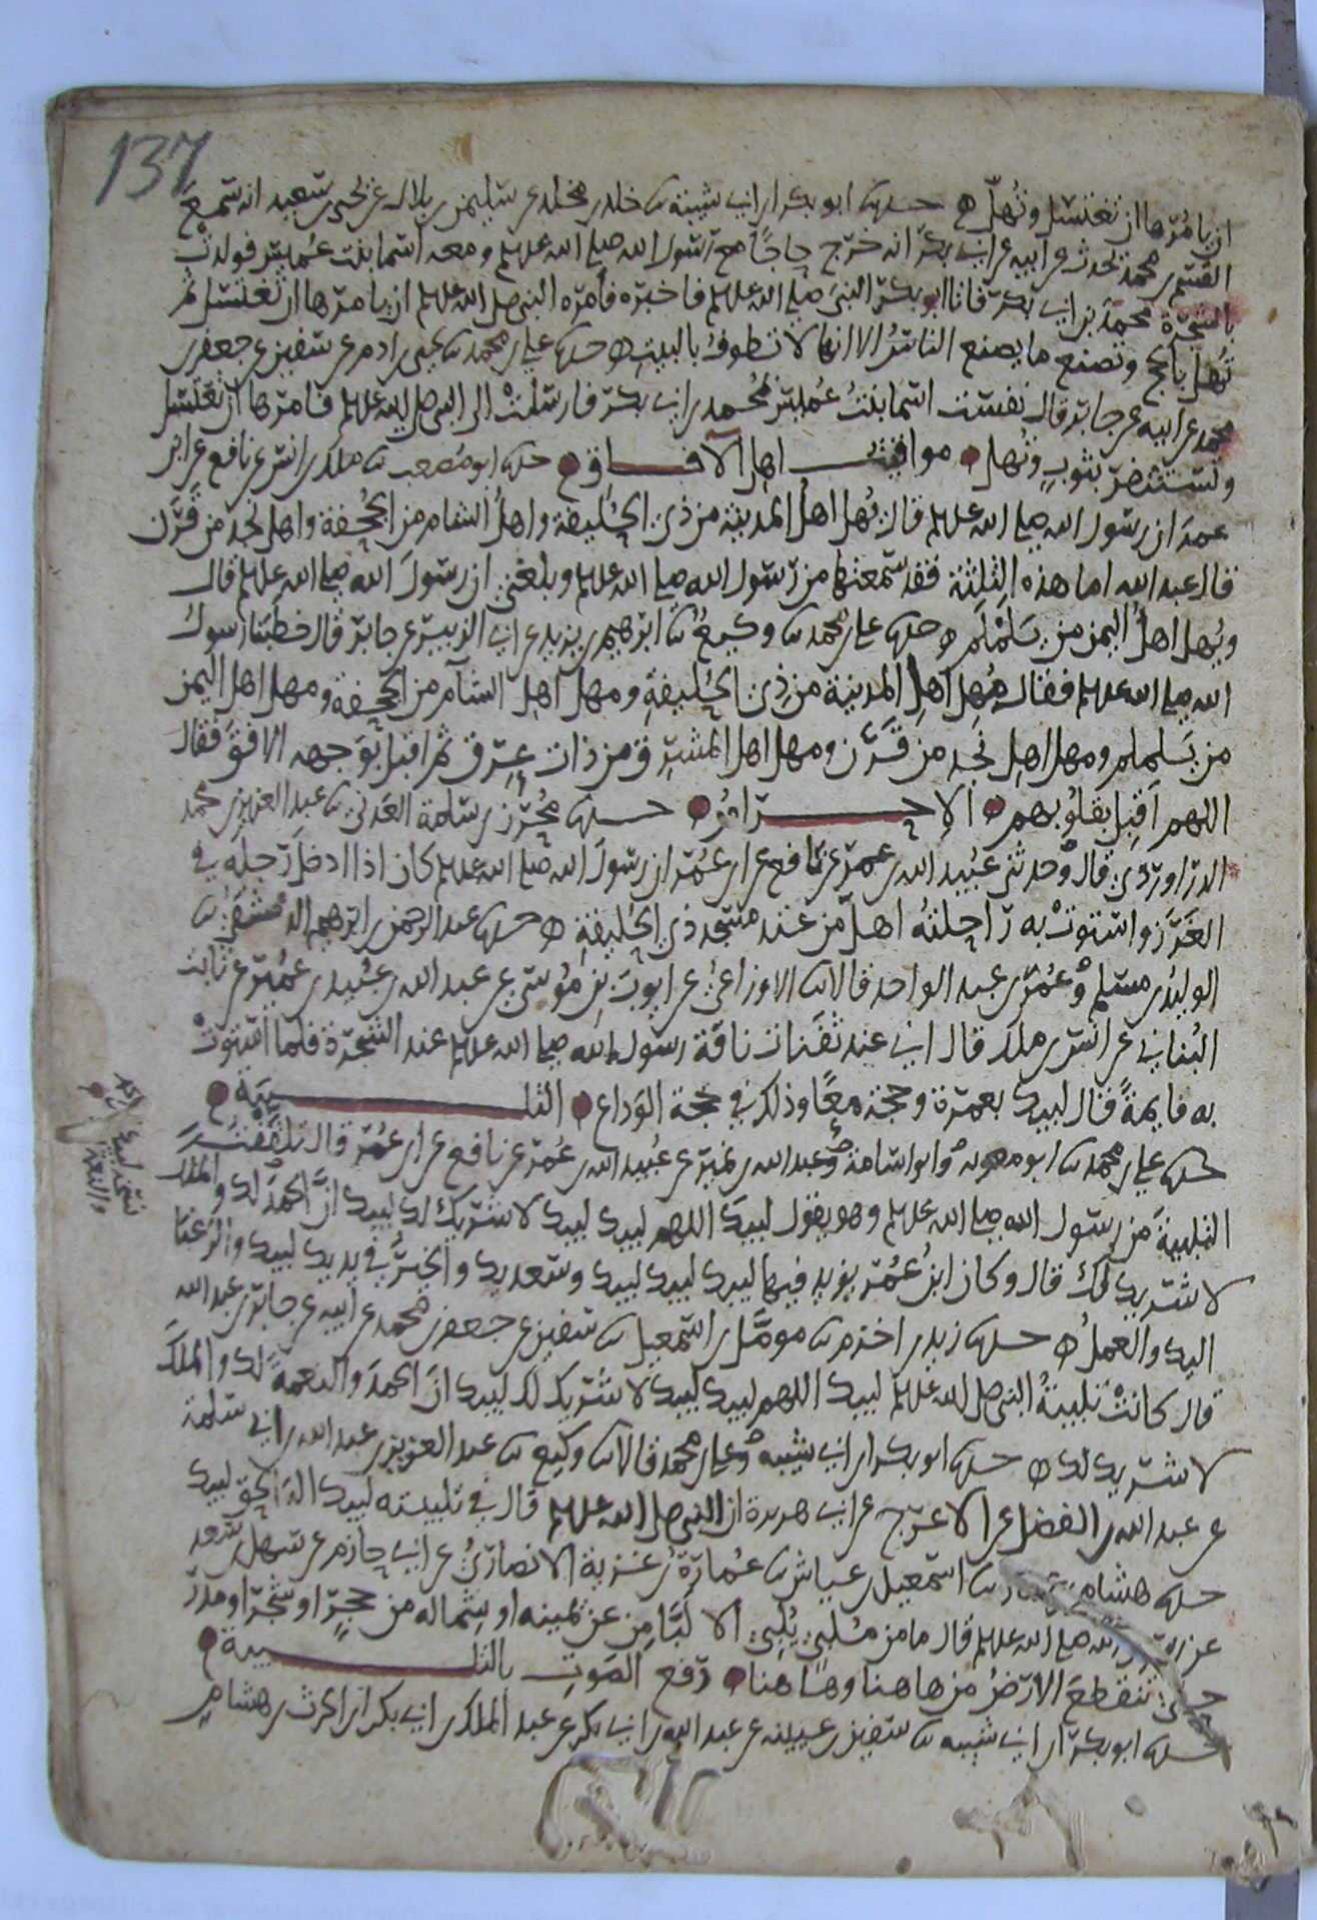 137
ان يامرها ان تغتسل وتُهلّ ه حدثنا ابو بكر ابن ابي شيبة ثنا خلد بن مخلد عن سليمن بن بلال عن يحيى بن سعيد انه سمع
القسم بن محمد يحدث عن ابيه عن ابي بكر انه خرج حاجًا مع رسول الله صلى الله عليه وسلم ومعه اسما بنت عميس فولدت
بالشجرة محمد بن ابي بكر فاتا ابو بكر النبي صلى الله عليه وسلم فاخبره فامره النبي صلى الله عليه وسلم ان يامرها ان تغتسل ثم
تُهل بالحج وتصنع ما يصنع الناسُ الا انها لا تطوفُ بالبيت ه حدثنا علي بن محمد ثنا يحيى بن ادم عن سفين عن جعفر بن
محمد عن ابيه عن جابر قال نفست اسما بنتُ عُميس بمُحمد بن ابي بكر فارسلتْ الى النبي صلى الله عليه وسلم فامرها ان تغتسل
وتستثفر بثوبٍ وتهل مواقيت اهل الآفاق حدثنا ابو مُصعب ثنا ملك بن انس عن نافع عن ابن
عمر ان رسول الله صلى الله عليه وسلم قال يُهل اهلُ المدينة من ذي الحليفة واهلُ الشام من الجحفة واهل نجد من قرن
قال عبد الله اما هذه الثلثة فقد سمعتها من رسول الله صلى الله عليه وسلم وبلغني ان رسول الله صلى الله عليه وسلم قال
ويُهل اهلُ اليمن من يلملم ه حدثنا علي بن محمد ثنا وكيعٌ ثنا ابرهيم بن يزيد عن ابي الزبير عن جابر قال خطبنا رسولُ
الله صلى الله عليه وسلم فقال مُهل اهلِ المدينة من ذي الحُليفةِ ومهل اهلِ الشام من الجحفة ومهل اهل اليمن
من يلملم ومهل اهلِ نجدٍ من قرن ومهل اهل المشرق من ذات عِرق ثم اقبل بوجهه الافق فقال
اللهم اَقبِل بقلوبهم الاحرامُ حدثنا مُحرز بن سلمة العدني ثنا عبد العزيز بن محمد
الدراوردي قال وحدثني عُبيد الله بن عمر عن نافع عن ابن عُمر ان رسول الله صلى الله عليه وسلم كان اذا ادخل رجله في
الغَرز واستوتْ به راحلتُه اهلّ من عند مسجد ذي الحُليفةِ ه حدثنا عبد الرحمن بن ابرهيم الدمشقي ثنا
الوليدُ بن مسلم وعُمر بن عبد الواحد قالا ثنا الاوزاعيُ عن ايوب بن مُوسى عن عبد الله بن عُبيد بن عُمير عن ثابت
البُناني عن انس بن ملك قال اني عند ثفنات ناقة رسول الله صلى الله عليه وسلم عند الشجرة فلما استوتْ
به قايمةً قال لبيك بعمرة وحجة معًا وذلك في حجة الوداع التلبية
حدثنا علي بن محمد ثنا ابو معوية وابو اسامة وعبد الله بن نمير عن عُبيد الله بن عُمر عن نافع عن ابن عُمر قال تلقفتُ
التلبيةَ من رسول الله صلى الله عليه وسلم وهو يقول لبيكَ اللهم لبيك لبيك لا شريك لك لبيك انّ الحمدَ لك والملك
لا شريك لك قال وكان ابنُ عُمر يزيد فيها لبيك لبيك لبيك وسعديك والخيرُ في يديك لبيك والرغبا
اليك والعملُ ه حدثنا زيد بن اخزم ثنا مومّل بن اسمعيل ثنا سفين عن جعفر بن محمد عن ابيه عن جابر بن عبد الله
قال كانتْ تلبيةُ النبي صلى الله عليه وسلم لبيك اللهم لبيك لبيك لا شريك لك لبيك ان الحمدَ والنعمةَ لك والملكَ
لا شريك لك ه حدثنا ابو بكر ابن ابي شيبة وعلي بن محمد قالا ثنا وكيع ثنا عبد العزيز بن عبد الله بن ابي سلمة
عن عبد الله بن الفضل عن الاعرج عن ابي هريرة ان النبي صلى الله عليه وسلم قال في تلبيته لبيك اله الحق لبيك
حدثنا هشام بن عمار ثنا اسمعيل بن عياش ثنا عُمارةُ بن غزية الانصاريُ عن ابي حازم عن سهل بن سعد
عن رسول الله صلى الله عليه وسلم قال ما من مُلبٍ يُلبي الا لبّا مِن عن يمينه او شماله من حجرٍ او شجر او مدر
حتى تنقطع الارضُ من هاهنا وهاهنا رفع الصوت بالتلبية
حدثنا ابو بكر ابن ابي شيبة ثنا سفين بن عيينة عن عبد الله بن ابي بكر عن عبد الملك بن ابي بكر ابن الحرث بن هشام
والنعمة